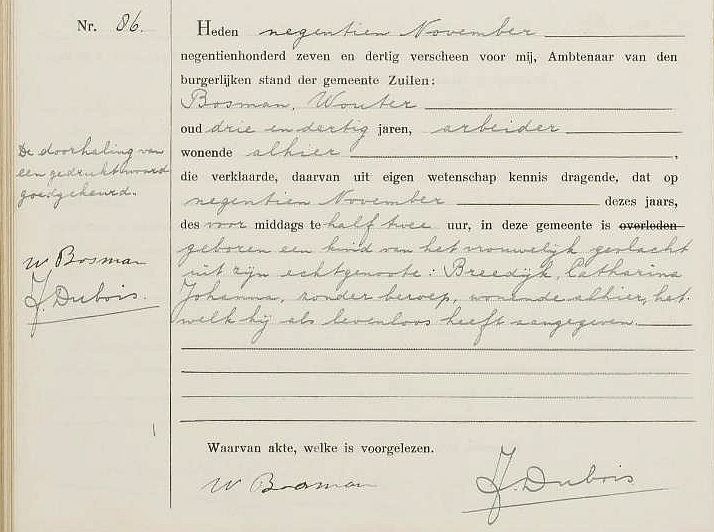 Nr. 86.
Heden negentien November
negentienhonderd zeven en dertig verscheen voor mij, Ambtenaar van den
burgerlijken stand der gemeente Zuilen:
Bosman, Wouter
oud drie en dertig jaren, arbeider
wonende alhier,
die verklaarde, daarvan uit eigen wetenschap kennis dragende, dat op
negentien November dezes jaars,
des voor middags te half twee uur, in deze gemeente is overleden
geboren een kind van het vrouwelijk geslacht
uit zijn echtgenoote: Breedijk, Catharina
Johanna, zonder beroep, wonende alhier, het-
welk hij als levenloos heeft aangegeven.
De doorhaling van
een gedrukt woord
goedgekeurd.
W Bosman
J. Dubois.
Waarvan akte, welke is voorgelezen.
W Bosman
J. Dubois